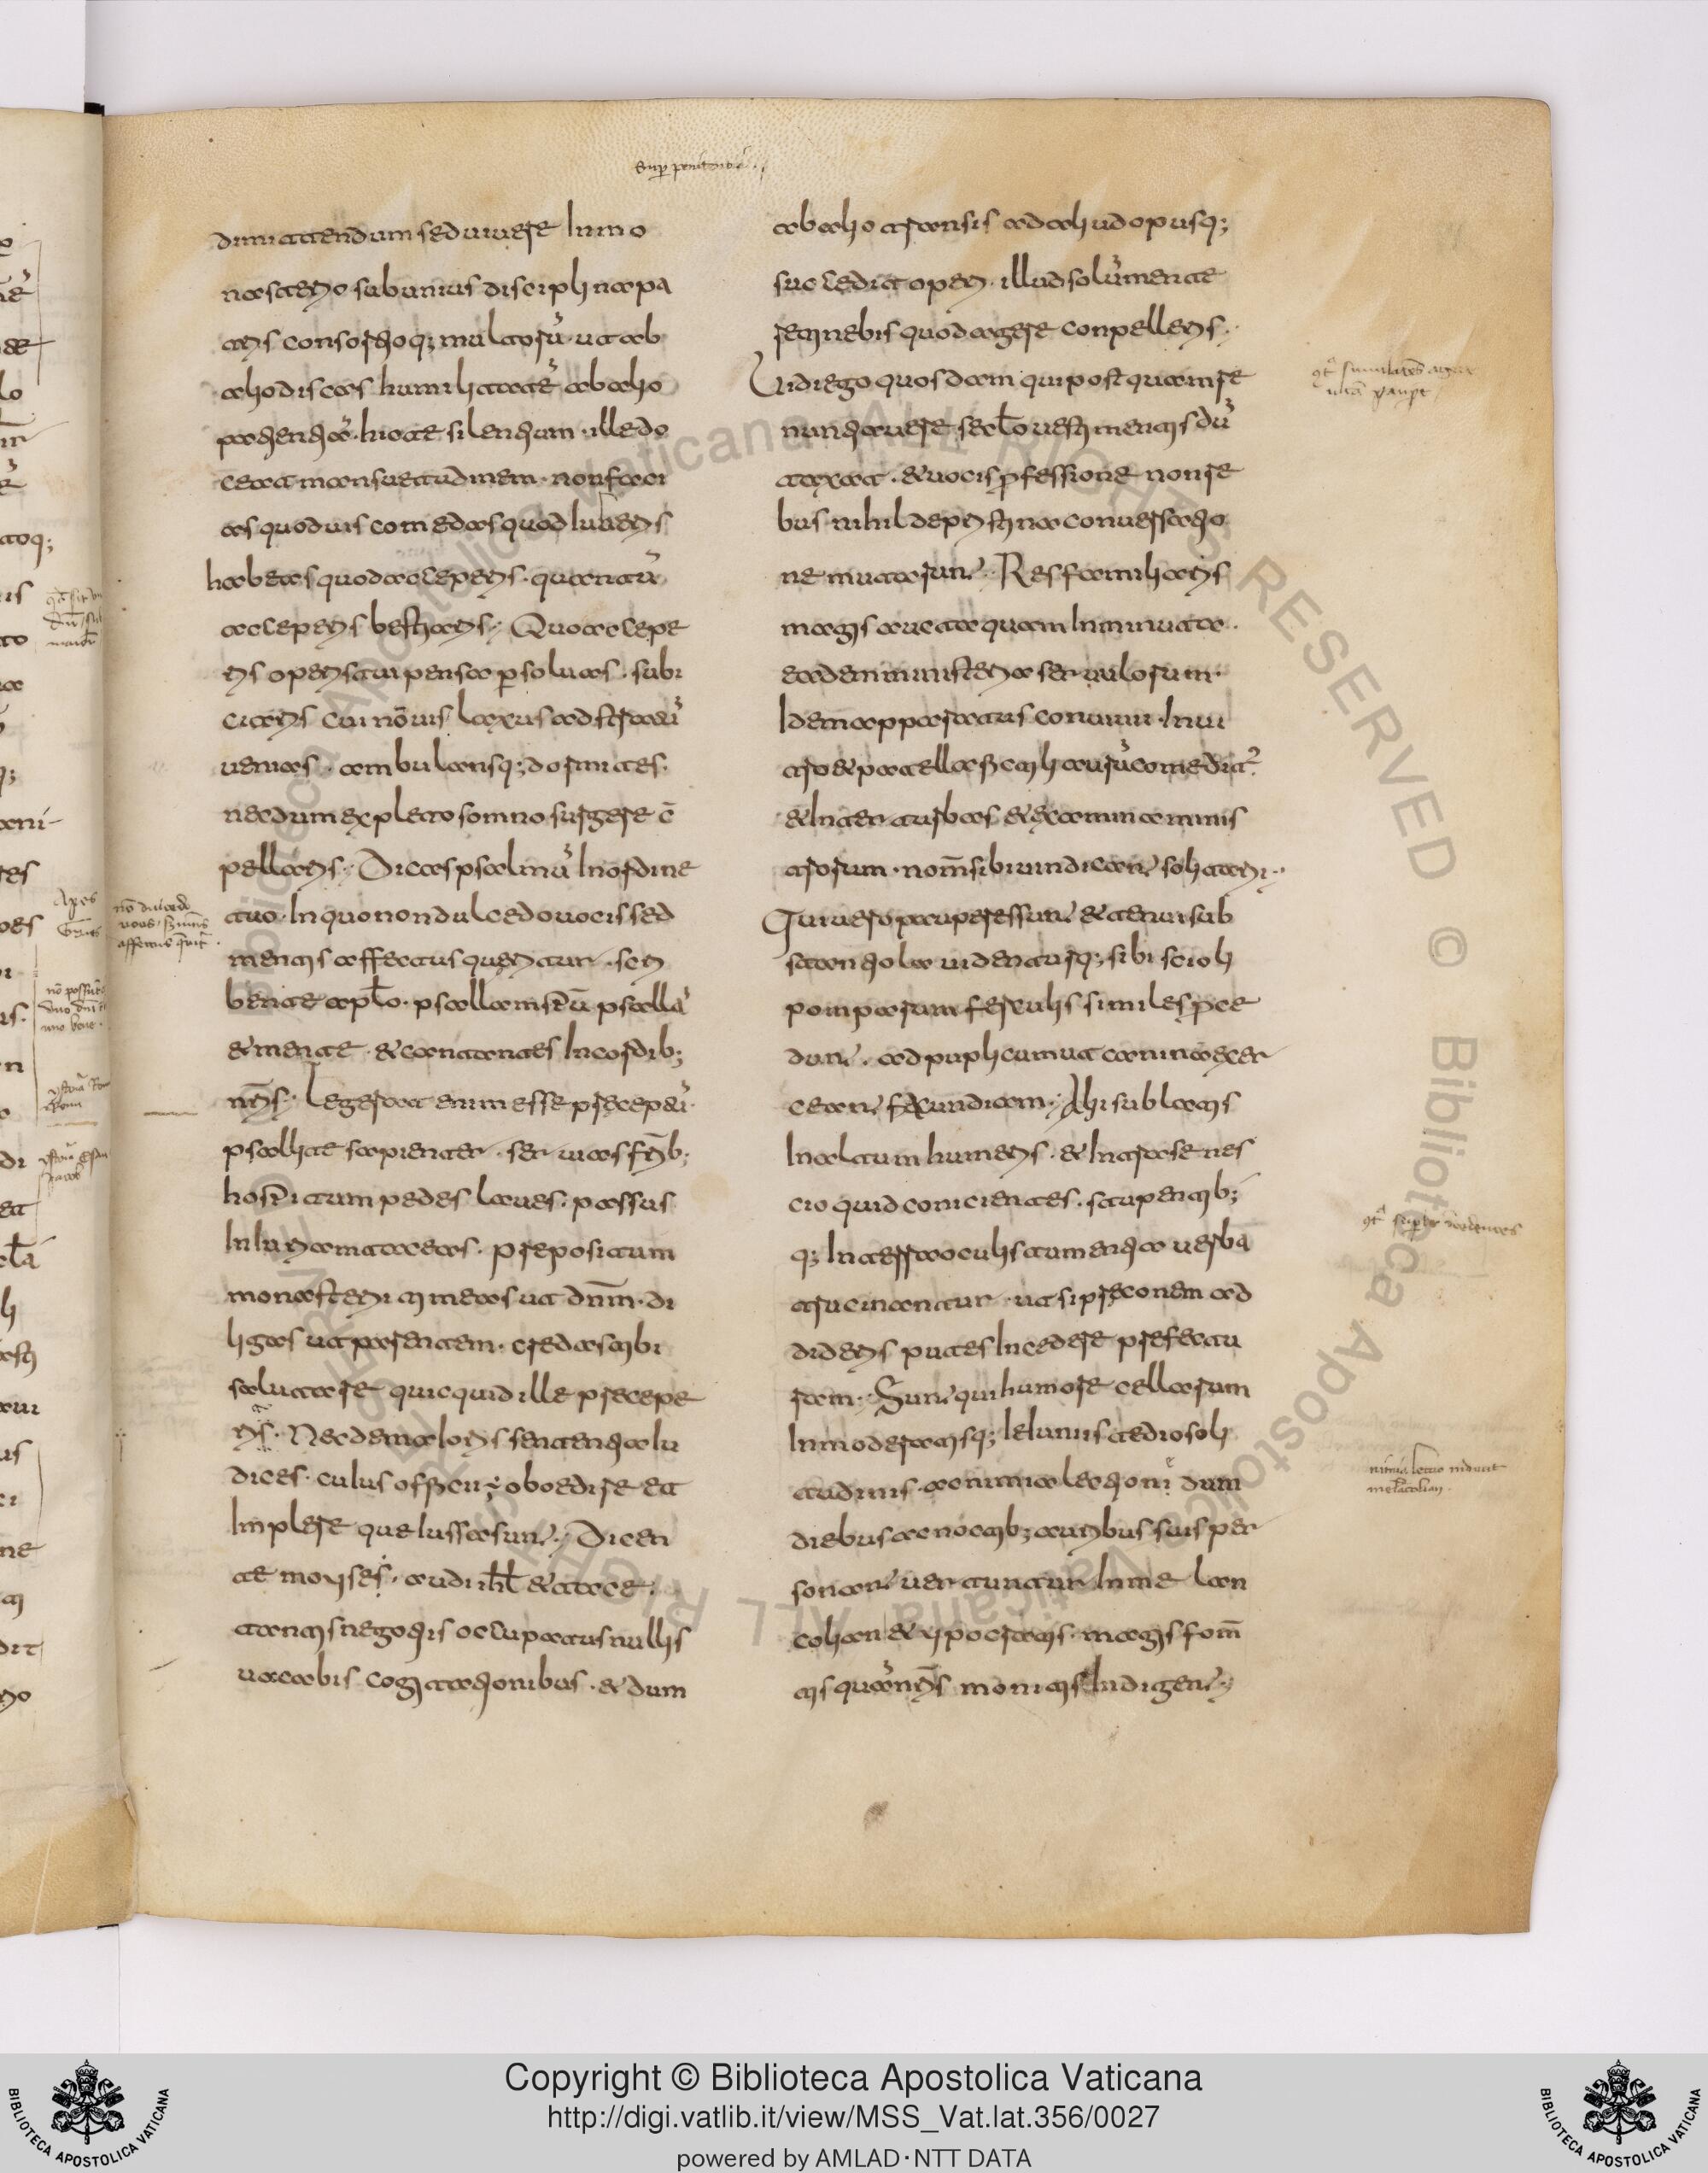 dimittendum sed uiuere in mo
nasterio sub unius disciplina pa
tris consortioq; multorū. ut ab
alio discas humilitatē ab alio
patientiā. hic te silentium. ille do
ceat mansuetudinem. non faci
as quod uis comedas quod iuberis
habeas quod acceperis. quantū
acceperis uestiaris. Quo accepe
ris operis tui pensa ꝑsoluas. subi
ciaris cui nō uis laxus ad stratū
uenias. ambulansq; dormites.
necdum expleto somno surgere cō
pellaris. Dicas psalmū in ordine
tuo. in quo non dulcedo uocis sed
mentis affectus queritur. scri
bente apl̄o. psallam sp̄u psallā
& mente. & cantantes in cordib;
nr̄is. Legerat enim esse preceptū.
psallite sapienter. seruias fr̄ib;
hospitum pedes laues. passus
iniuriam taceas. prepositum
monasterii timeas ut dn̄m. di
ligas ut parentem. credas tibi
salutare quicquid ille precepe
rit. Nec de maioris sententia iu
dices. cuius officii ÷ oboedire et
implere que iussa sunt. Dicen
te moyses. audi isr̄l & tace.
tantis negotiis occupatus nullis
uacabis cogitationibus. & dum
ab alio transis ad aliud opusq;
succedit operi. illud solū mente
retinebis quod agere conpelleris.
Uidi ego quosdam qui postquam re
nuntiauere secl̄o uestimentis dū
taxat. & uocis ꝓfessione non re
bus nihil de pristina conuersatio
ne mutarunt. Res familiaris
magis aucta quam inminuta.
eadem ministeria seruulorum.
idem apparatus conuiuii. in ui
tro & patella fictili aurū comeditur
& inter turbas & examina minis
trorum. nom̄ sibi uindicant solitarii.
Qui uero pauperes sunt & tenui sub
stantiola uidenturq; sibi scioli
pomparum ferculis similes proce
dunt. ad puplicum ut caninā exer
ceant facundiam. Alii sublatis
in altum humeris. & intra se nes
cio quid coniicientes. stupentib;
q; in terra oculis tumentia uerba
trutinantur. ut si preconem ad
dideris putes incedere prefectu
ram. Sunt qui humore cellarum
inmoderatisq; ieiuniis tedio soli
tudinis. ac nimia lectione dum
diebus ac noctib; auribus suis per
sonant uertuntur in melan
coliam & ypocratis. magis fom̄
tis quā nr̄is monitis indigent.